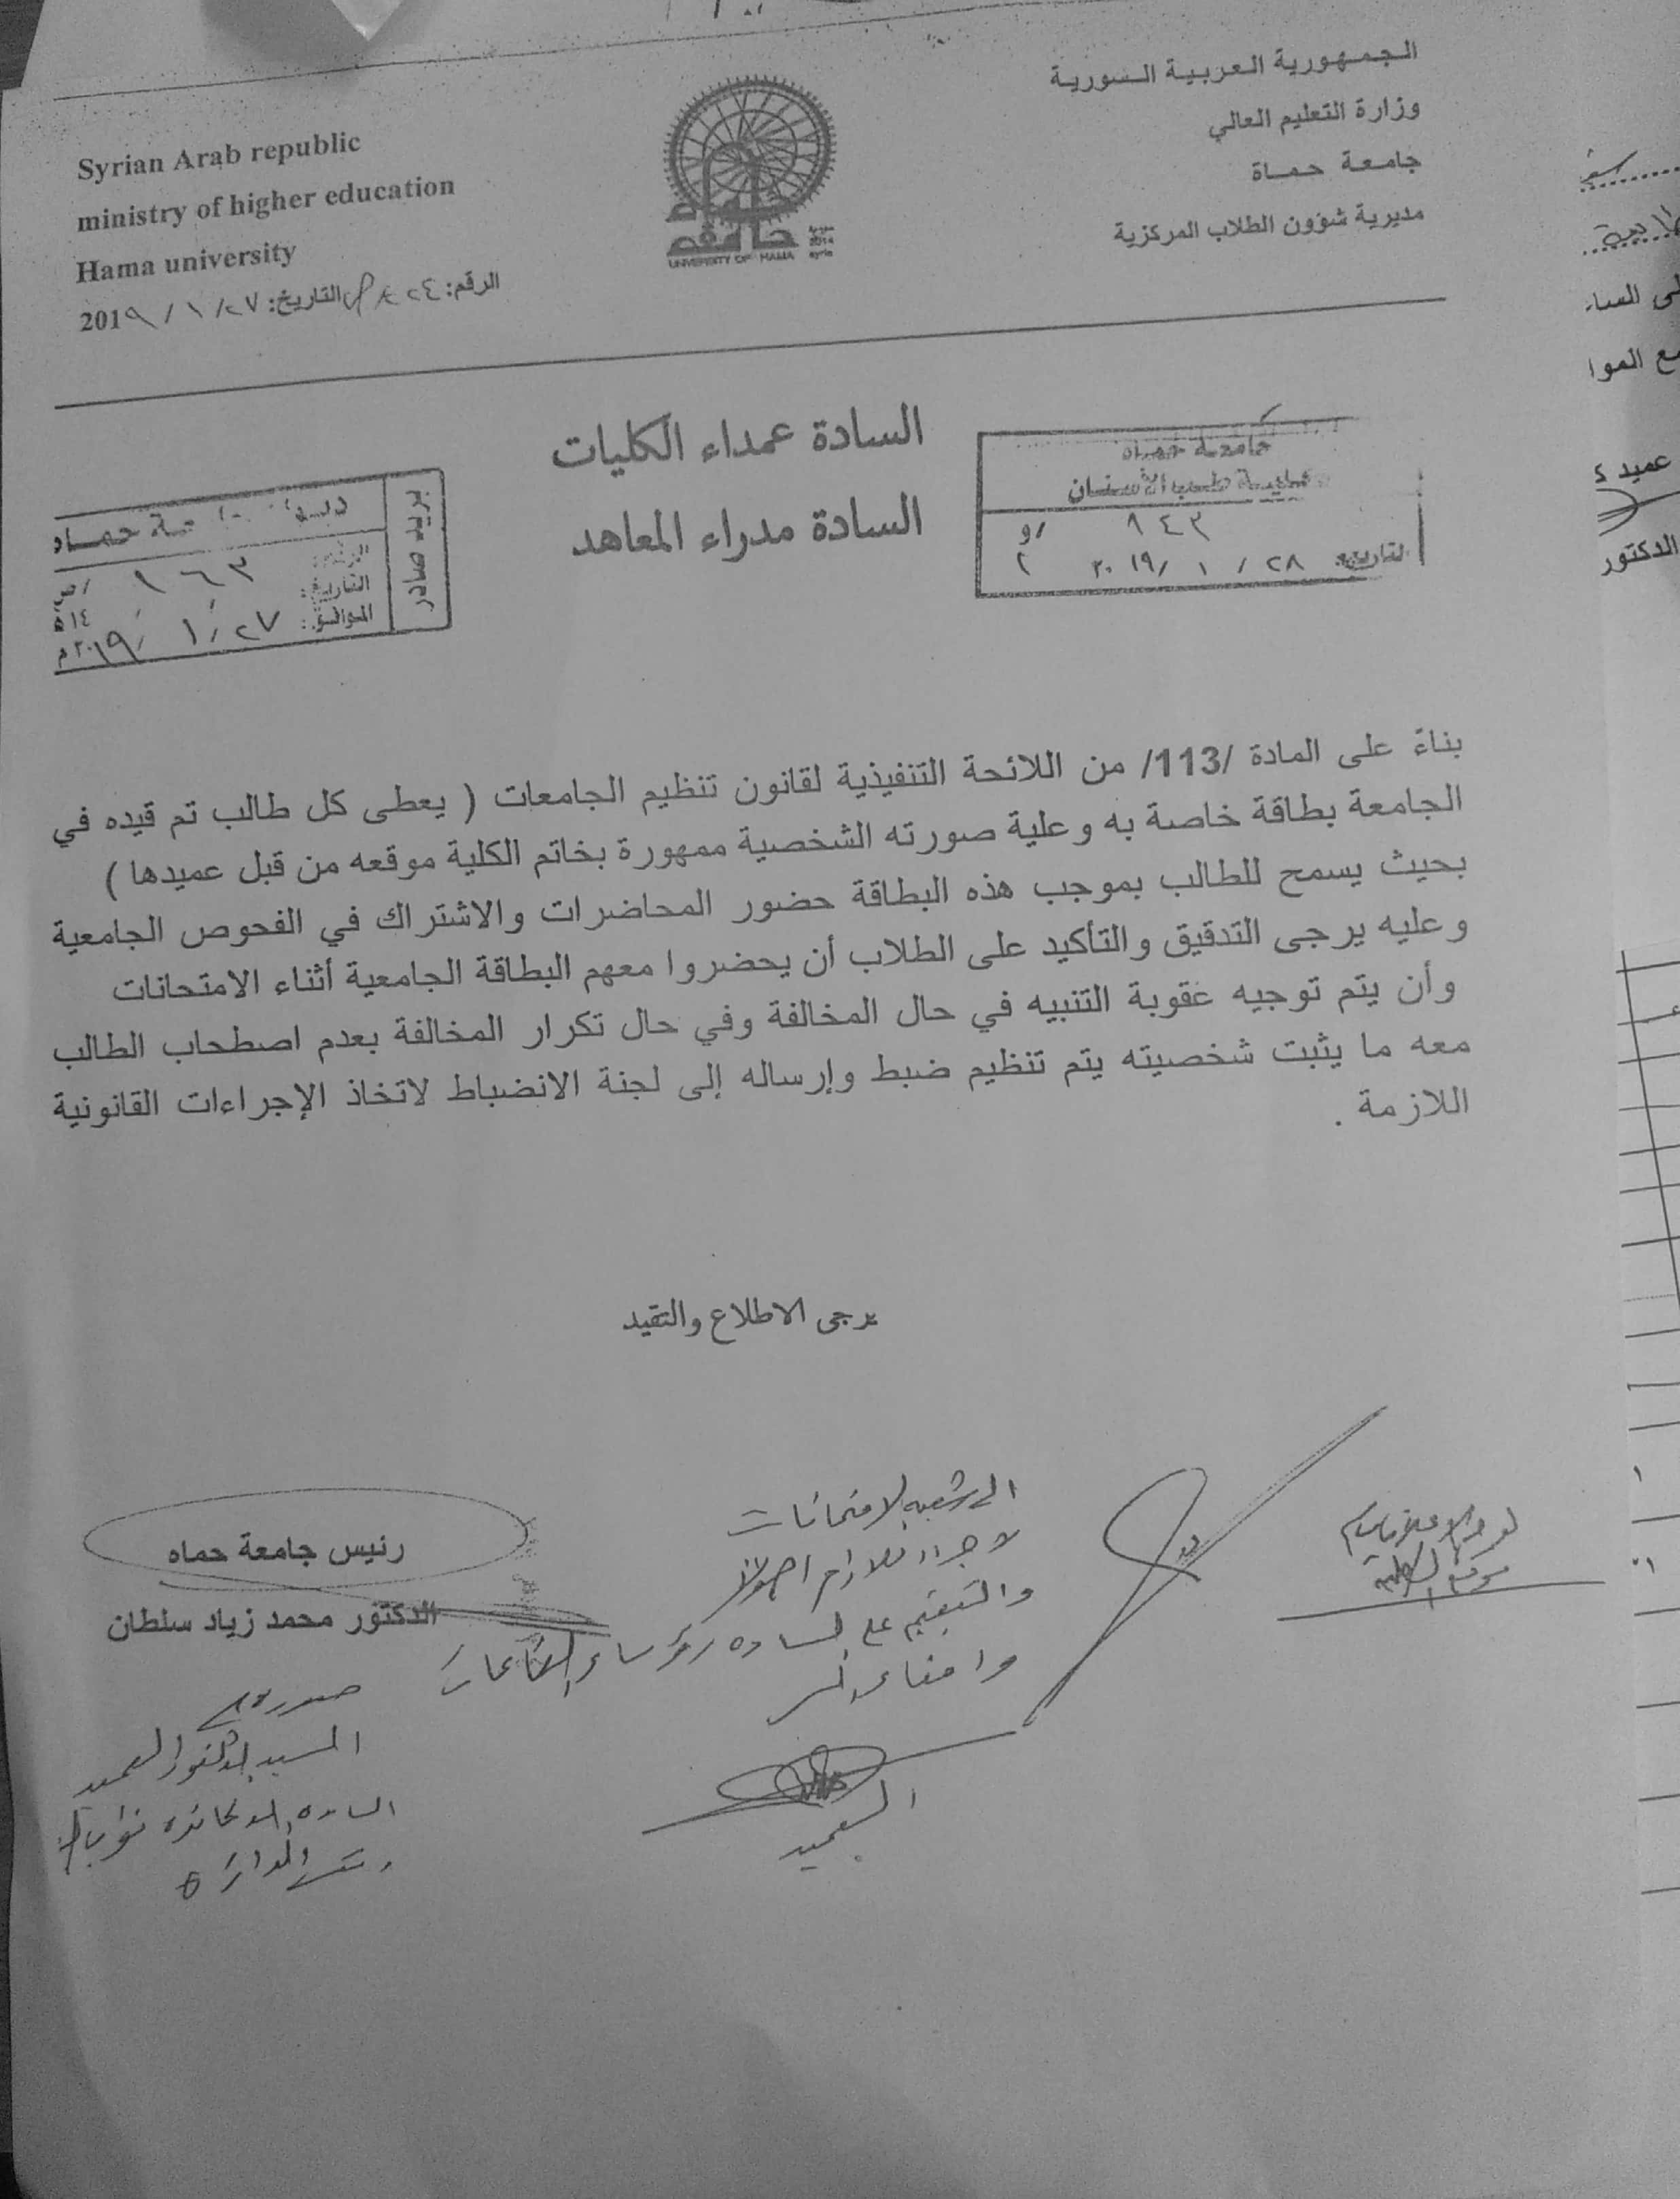 الجمهورية العربية السورية
وزارة التعليم العالي
جامعة حماة
مديرية شؤون الطلاب المركزية
Syrian Arab republic
ministry of higher education
Hama university
الرقم: ٢٤ التاريخ: ٢٧/ ١ / 201٩
UNIVERSITY OF HAMA
السادة عمداء الكليات
السادة مدراء المعاهد
جامعة حماه
كلية طب الأسنان
٨٤٣ /و
التاريخ: ٢٨ / ١ /٢٠١٩
بريد صادر
حماه
الرقم: ١٦٣ /ص
التاريخ: ١٤ ه
الموافق: ٢٧ / ١ / ٢٠١٩ م
بناءً على المادة /113/ من اللائحة التنفيذية لقانون تنظيم الجامعات ( يعطى كل طالب تم قيده في
الجامعة بطاقة خاصة به وعلية صورته الشخصية ممهورة بخاتم الكلية موقعه من قبل عميدها )
بحيث يسمح للطالب بموجب هذه البطاقة حضور المحاضرات والاشتراك في الفحوص الجامعية
وعليه يرجى التدقيق والتأكيد على الطلاب أن يحضروا معهم البطاقة الجامعية أثناء الامتحانات
وأن يتم توجيه عقوبة التنبيه في حال المخالفة وفي حال تكرار المخالفة بعدم اصطحاب الطالب
معه ما يثبت شخصيته يتم تنظيم ضبط وإرساله إلى لجنة الانضباط لاتخاذ الإجراءات القانونية
اللازمة .
يرجى الاطلاع والتقيد
رئيس جامعة حماه
الدكتور محمد زياد سلطان
العميد
عميد
الدكتور